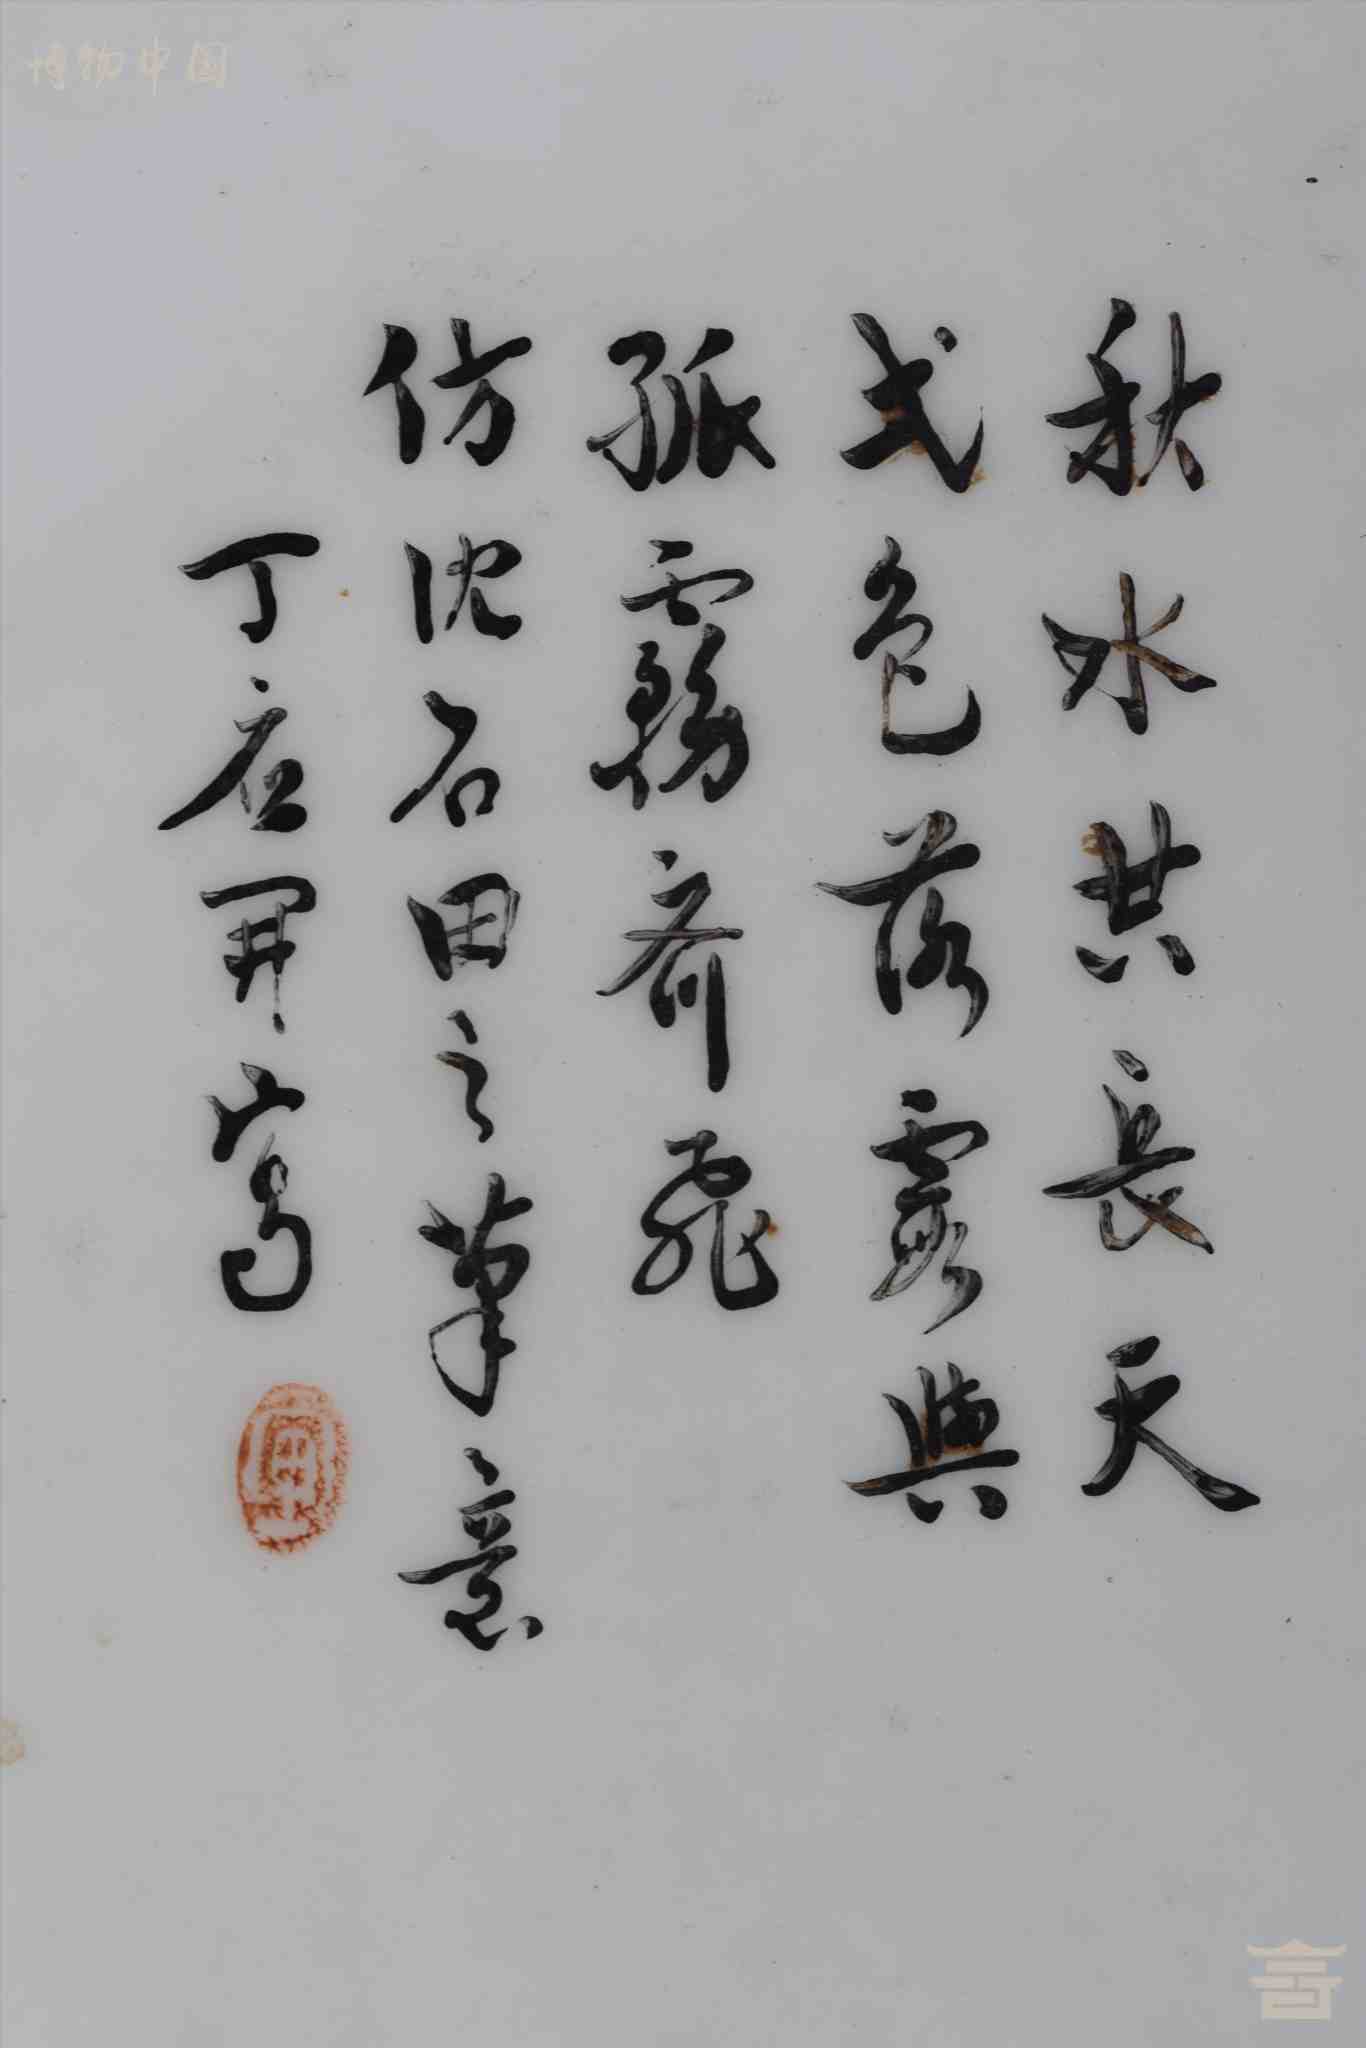 博物中国
秋水共長天
弌色落霞與
孤霧齊飛
仿沈石田之筆意
丁應開寫